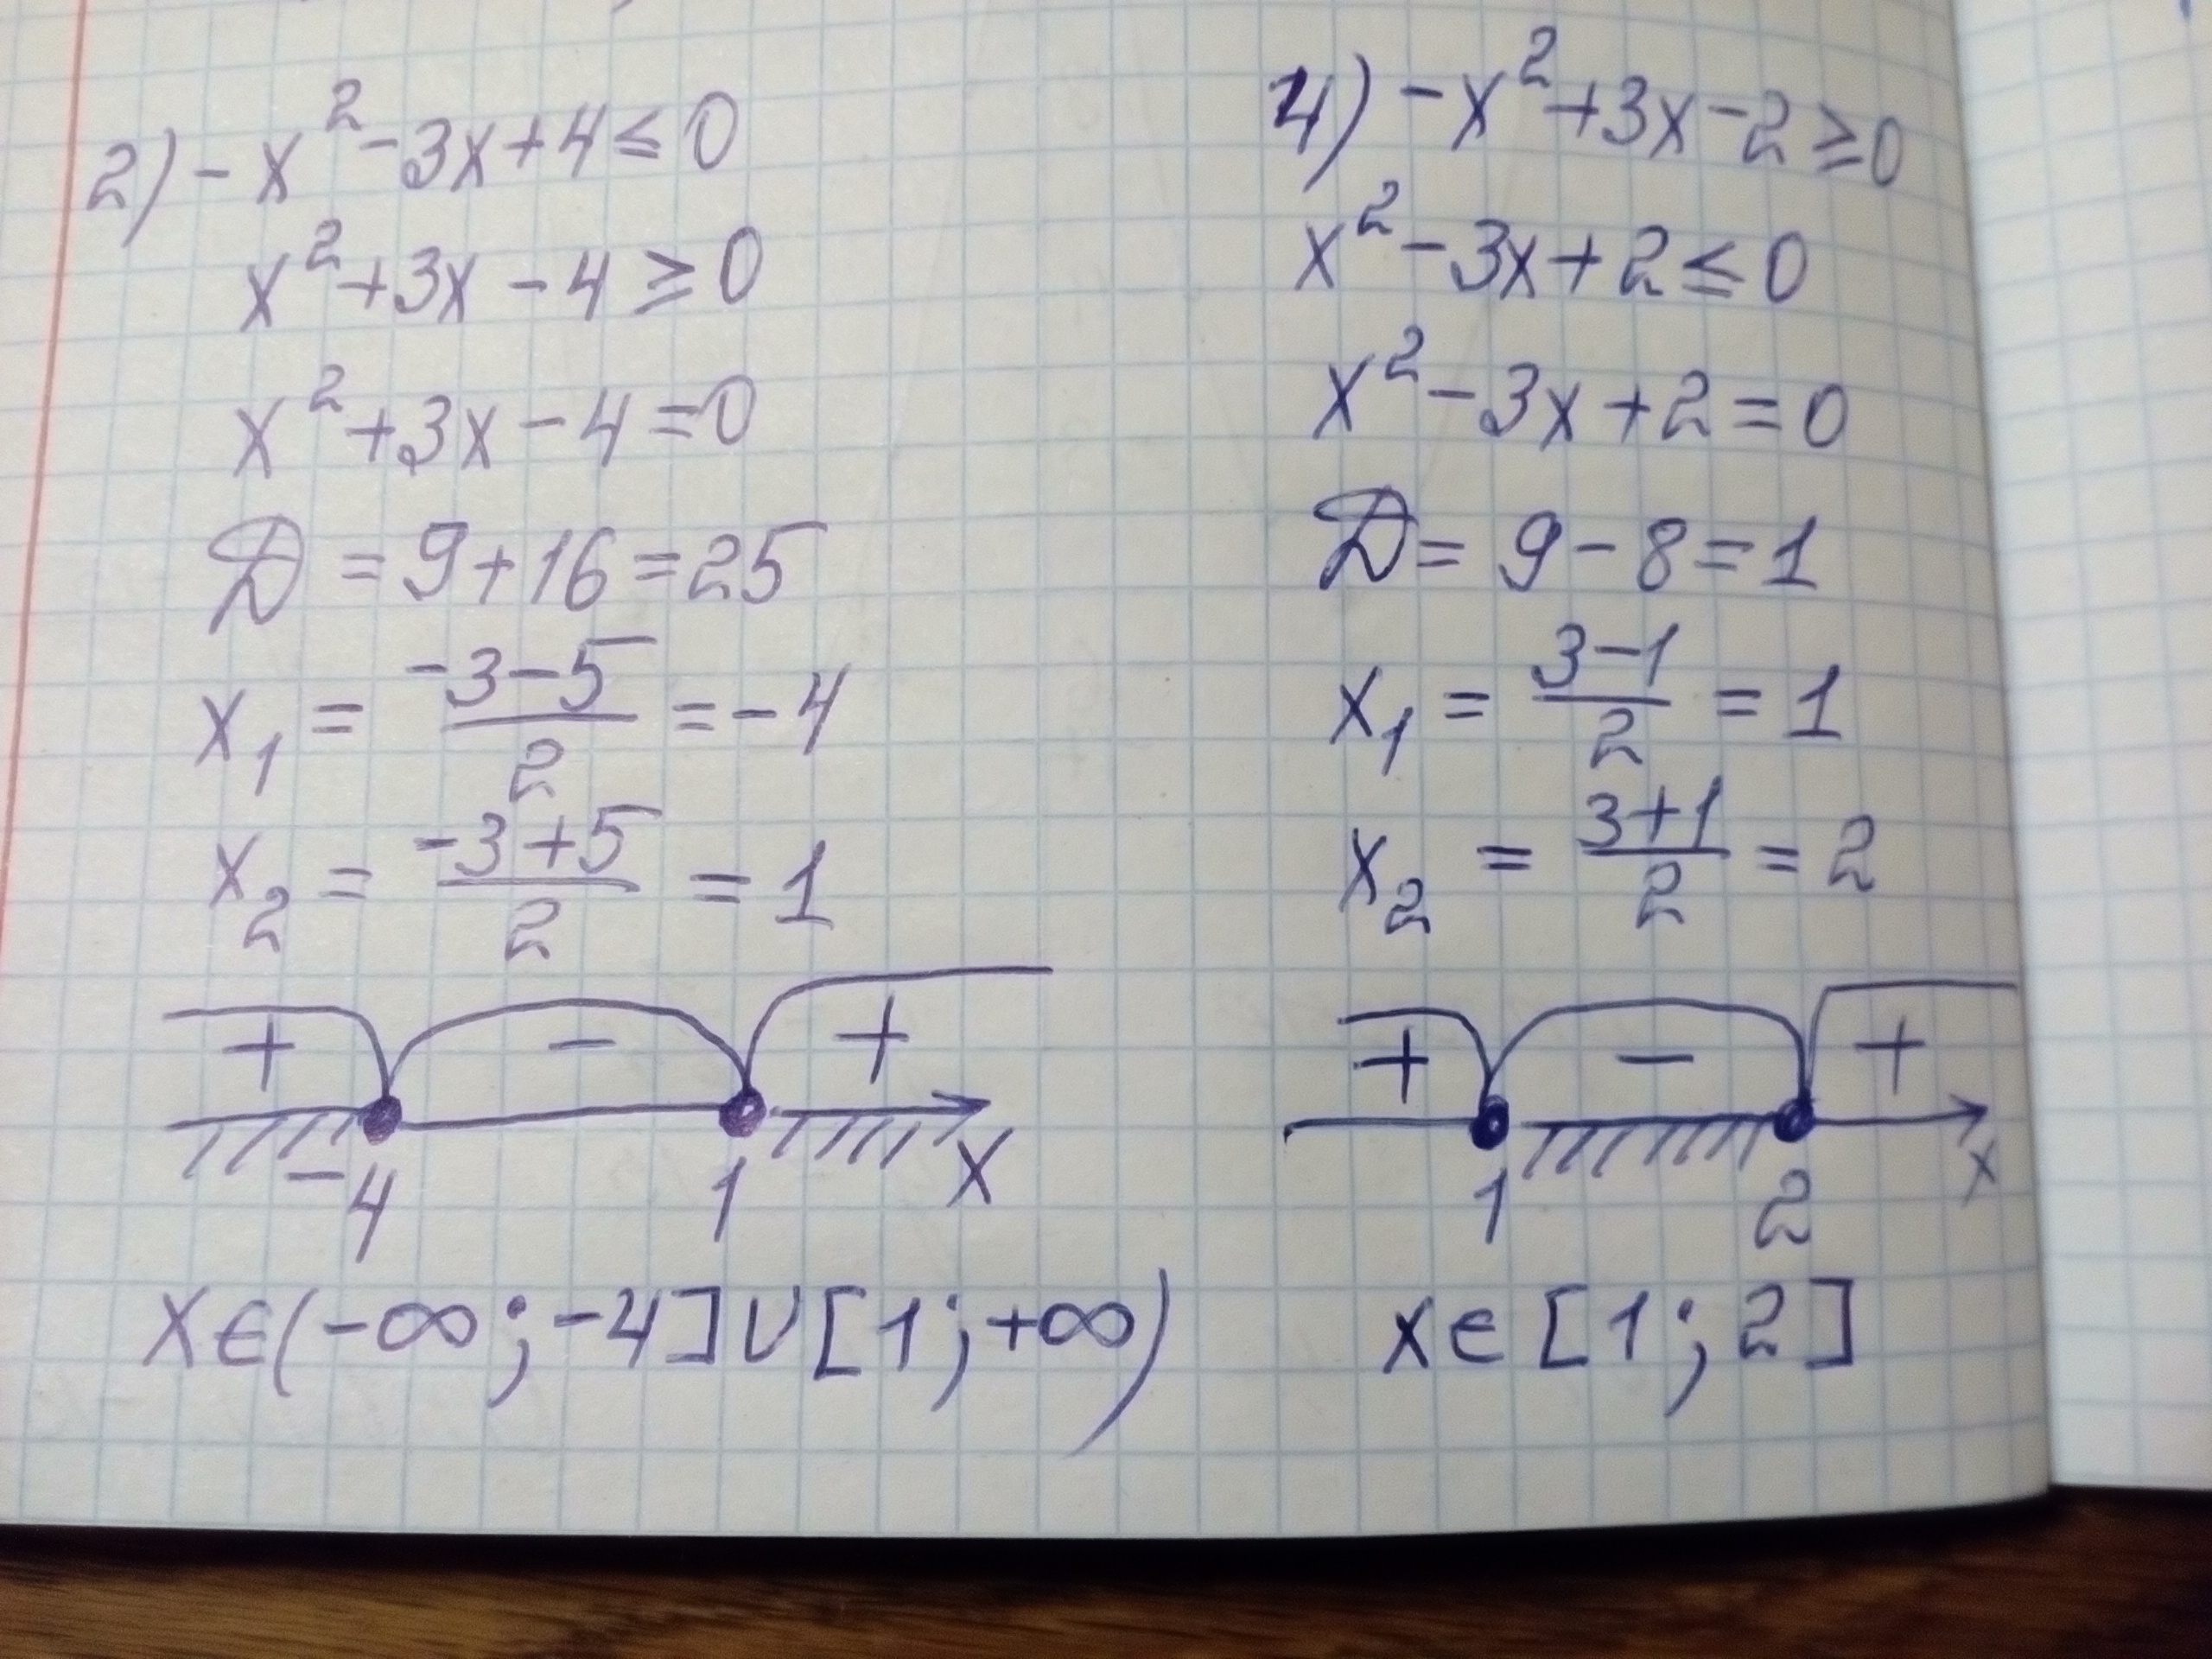 2) -x² - 3x + 4 ≤ 0
x² + 3x - 4 ≥ 0
x² + 3x - 4 = 0
D = 9 + 16 = 25
x₁ = (-3-5)/2 = -4
x₂ = (-3+5)/2 = 1
+ - +
-4 1 x
x∈(-∞; -4]∪[1; +∞)
4) -x² + 3x - 2 ≥ 0
x² - 3x + 2 ≤ 0
x² - 3x + 2 = 0
D = 9 - 8 = 1
x₁ = (3-1)/2 = 1
x₂ = (3+1)/2 = 2
+ - +
1 2 x
x∈[1; 2]